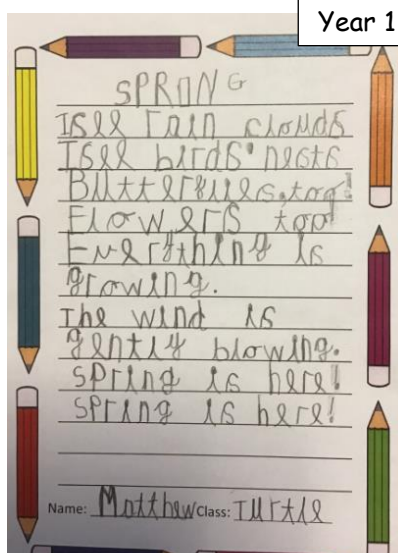 Year 1
SPRING
I see rain clouds
I see birds' nests
Butterflies, too!
Flowers too!
Everything is
growing.
The wind is
gently blowing.
Spring is here!
Spring is here!
Name: Matthew Class: Turtle